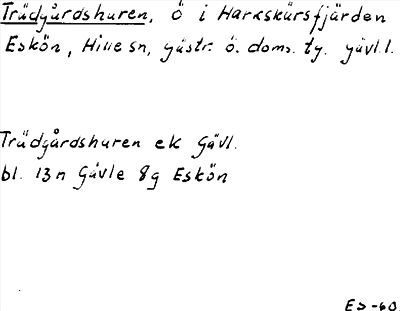 Trädgårdshuren, Ö i Harkskärsfjärden
Eskön, Hille sn, gästr. ö. doms. tg. gävl.l.
Trädgårdshuren ek Gävl.
bl. 13 n Gävle 8g Eskön
ES-60